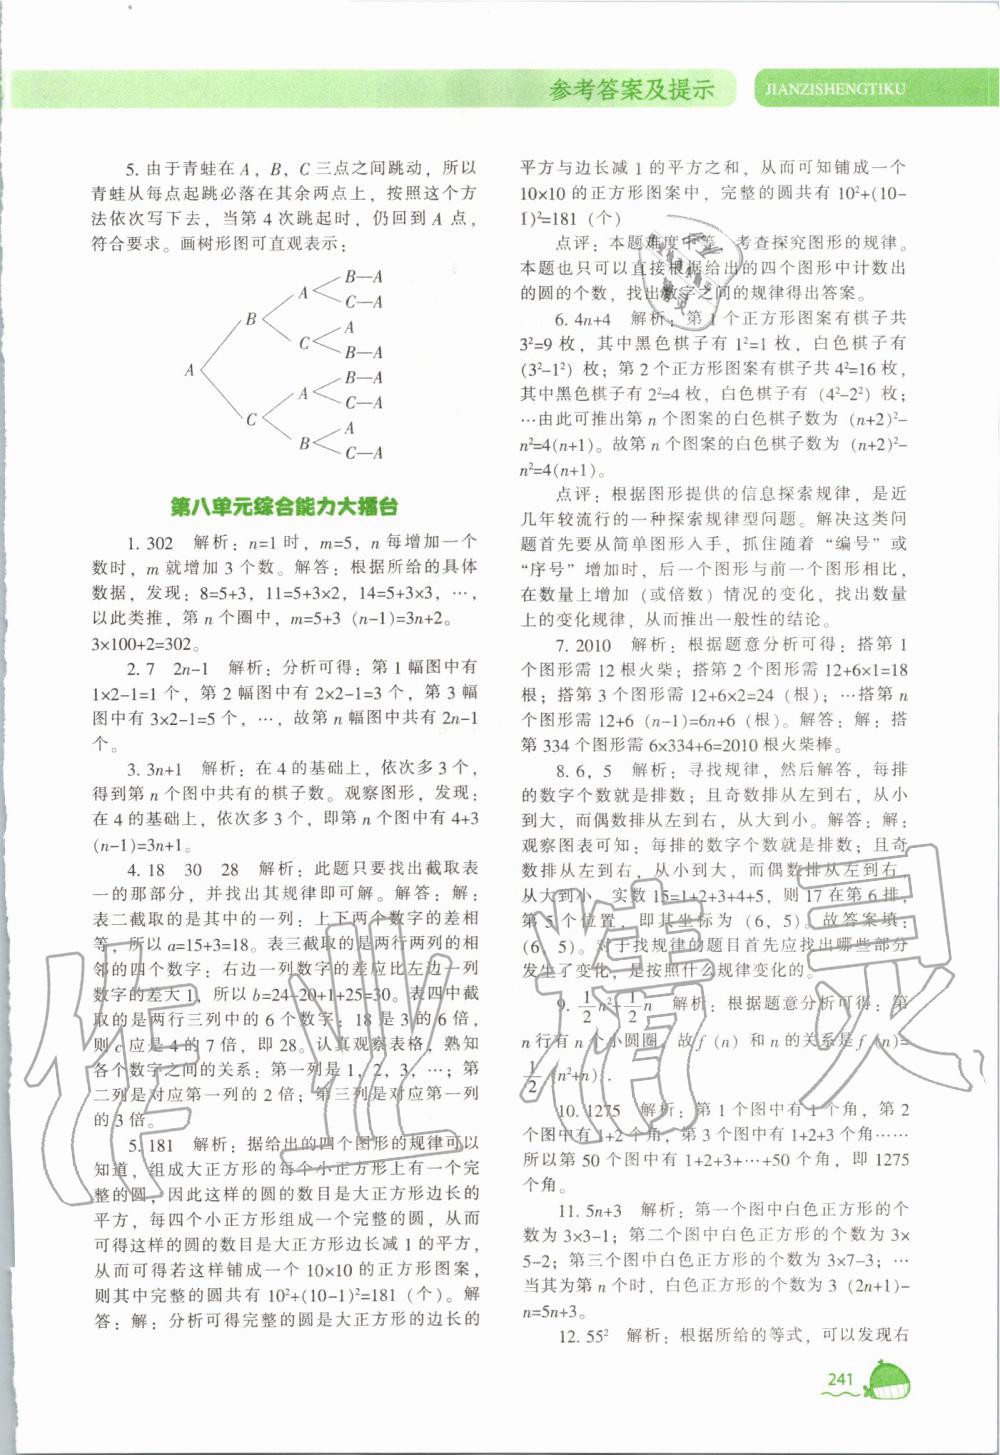 参考答案及提示
JIANZISHENGTIKU
5. 由于青蛙在 A，B，C 三点之间跳动，所以
青蛙从每点起跳必落在其余两点上，按照这个方
法依次写下去，当第 4 次跳起时，仍回到 A 点，
符合要求。画树形图可直观表示：
B—A
A
C—A
B
A
C
B—A
A
B—A
A
C—A
C
A
B
C—A
第八单元综合能力大擂台
1. 302 解析：n=1 时，m=5，n 每增加一个
数时，m 就增加 3 个数。解答：根据所给的具体
数据，发现：8=5+3，11=5+3×2，14=5+3×3，…，
以此类推，第 n 个圈中，m=5+3 (n-1)=3n+2。
3×100+2=302。
2. 7 2n-1 解析：分析可得：第 1 幅图中有
1×2-1=1 个，第 2 幅图中有 2×2-1=3 个，第 3 幅
图中有 3×2-1=5 个，…，故第 n 幅图中共有 2n-1
个。
3. 3n+1 解析：在 4 的基础上，依次多 3 个，
得到第 n 个图中共有的棋子数。观察图形，发现：
在 4 的基础上，依次多 3 个，即第 n 个图中有 4+3
(n-1)=3n+1。
4. 18 30 28 解析：此题只要找出截取表
一的那部分，并找出其规律即可解。解答：解：
表二截取的是其中的一列：上下两个数字的差相
等，所以 a=15+3=18。表三截取的是两行两列的相
邻的四个数字：右边一列数字的差应比左边一列
数字的差大 1，所以 b=24-20+1+25=30。表四中截
取的是两行三列中的 6 个数字：18 是 3 的 6 倍，
则 c 应是 4 的 7 倍，即 28。认真观察表格，熟知
各个数字之间的关系：第一列是 1，2，3，…；第
二列是对应第一列的 2 倍；第三列是对应第一列
的 3 倍。
5. 181 解析：据给出的四个图形的规律可以
知道，组成大正方形的每个小正方形上有一个完
整的圆，因此这样的圆的数目是大正方形边长的
平方，每四个小正方形组成一个完整的圆，从而
可得这样的圆的数目是大正方形边长减 1 的平方，
从而可得若这样铺成一个 10×10 的正方形图案，
则其中完整的圆共有 10²+(10-1)²=181（个）。解
答：解：分析可得完整的圆是大正方形的边长的
平方与边长减 1 的平方之和，从而可知铺成一个
10×10 的正方形图案中，完整的圆共有 10²+(10-
1)²=181（个）
点评：本题难度中等，考查探究图形的规律。
本题也只可以直接根据给出的四个图形中计数出
的圆的个数，找出数字之间的规律得出答案。
6. 4n+4 解析：第 1 个正方形图案有棋子共
3²=9 枚，其中黑色棋子有 1²=1 枚，白色棋子有
(3²-1²) 枚；第 2 个正方形图案有棋子共 4²=16 枚，
其中黑色棋子有 2²=4 枚，白色棋子有 (4²-2²) 枚；
…由此可推出第 n 个图案的白色棋子数为 (n+2)²-
n²=4(n+1)。故第 n 个图案的白色棋子数为 (n+2)²-
n²=4(n+1)。
点评：根据图形提供的信息探索规律，是近
几年较流行的一种探索规律型问题。解决这类问
题首先要从简单图形入手，抓住随着“编号”或
“序号”增加时，后一个图形与前一个图形相比，
在数量上增加（或倍数）情况的变化，找出数量
上的变化规律，从而推出一般性的结论。
7. 2010 解析：根据题意分析可得：搭第 1
个图形需 12 根火柴；搭第 2 个图形需 12+6×1=18
根；搭第 3 个图形需 12+6×2=24（根）；…搭第 n
个图形需 12+6 (n-1)=6n+6（根）。解答：解：搭
第 334 个图形需 6×334+6=2010 根火柴棒。
8. 6，5 解析：寻找规律，然后解答，每排
的数字个数就是排数；且奇数排从左到右，从小
到大，而偶数排从左到右，从大到小。解答：解：
观察图表可知：每排的数字个数就是排数；且奇
数排从左到右，从小到大，而偶数排从左到右，
从大到小。实数 15=1+2+3+4+5，则 17 在第 6 排，
第 5 个位置，即其坐标为（6，5）。故答案填：
（6，5）。对于找规律的题目首先应找出哪些部分
发生了变化，是按照什么规律变化的。
9. 1/2 n²+1/2 n 解析：根据题意分析可得：第
n 行有 n 个小圆圈。故 f (n) 和 n 的关系是 f (n)=
1/2 (n²+n).
10. 1275 解析：第 1 个图中有 1 个角，第 2
个图中有 1+2 个角，第 3 个图中有 1+2+3 个角……
所以第 50 个图中有 1+2+3+…+50 个角，即 1275
个角。
11. 5n+3 解析：第一个图中白色正方形的个
数为 3×3-1；第二个图中白色正方形的个数为 3×
5-2；第三个图中白色正方形的个数为 3×7-3；…
当其为第 n 个时，白色正方形的个数为 3 (2n+1)-
n=5n+3。
12. 55² 解析：根据所给的等式，可以发现右
241
作业精灵